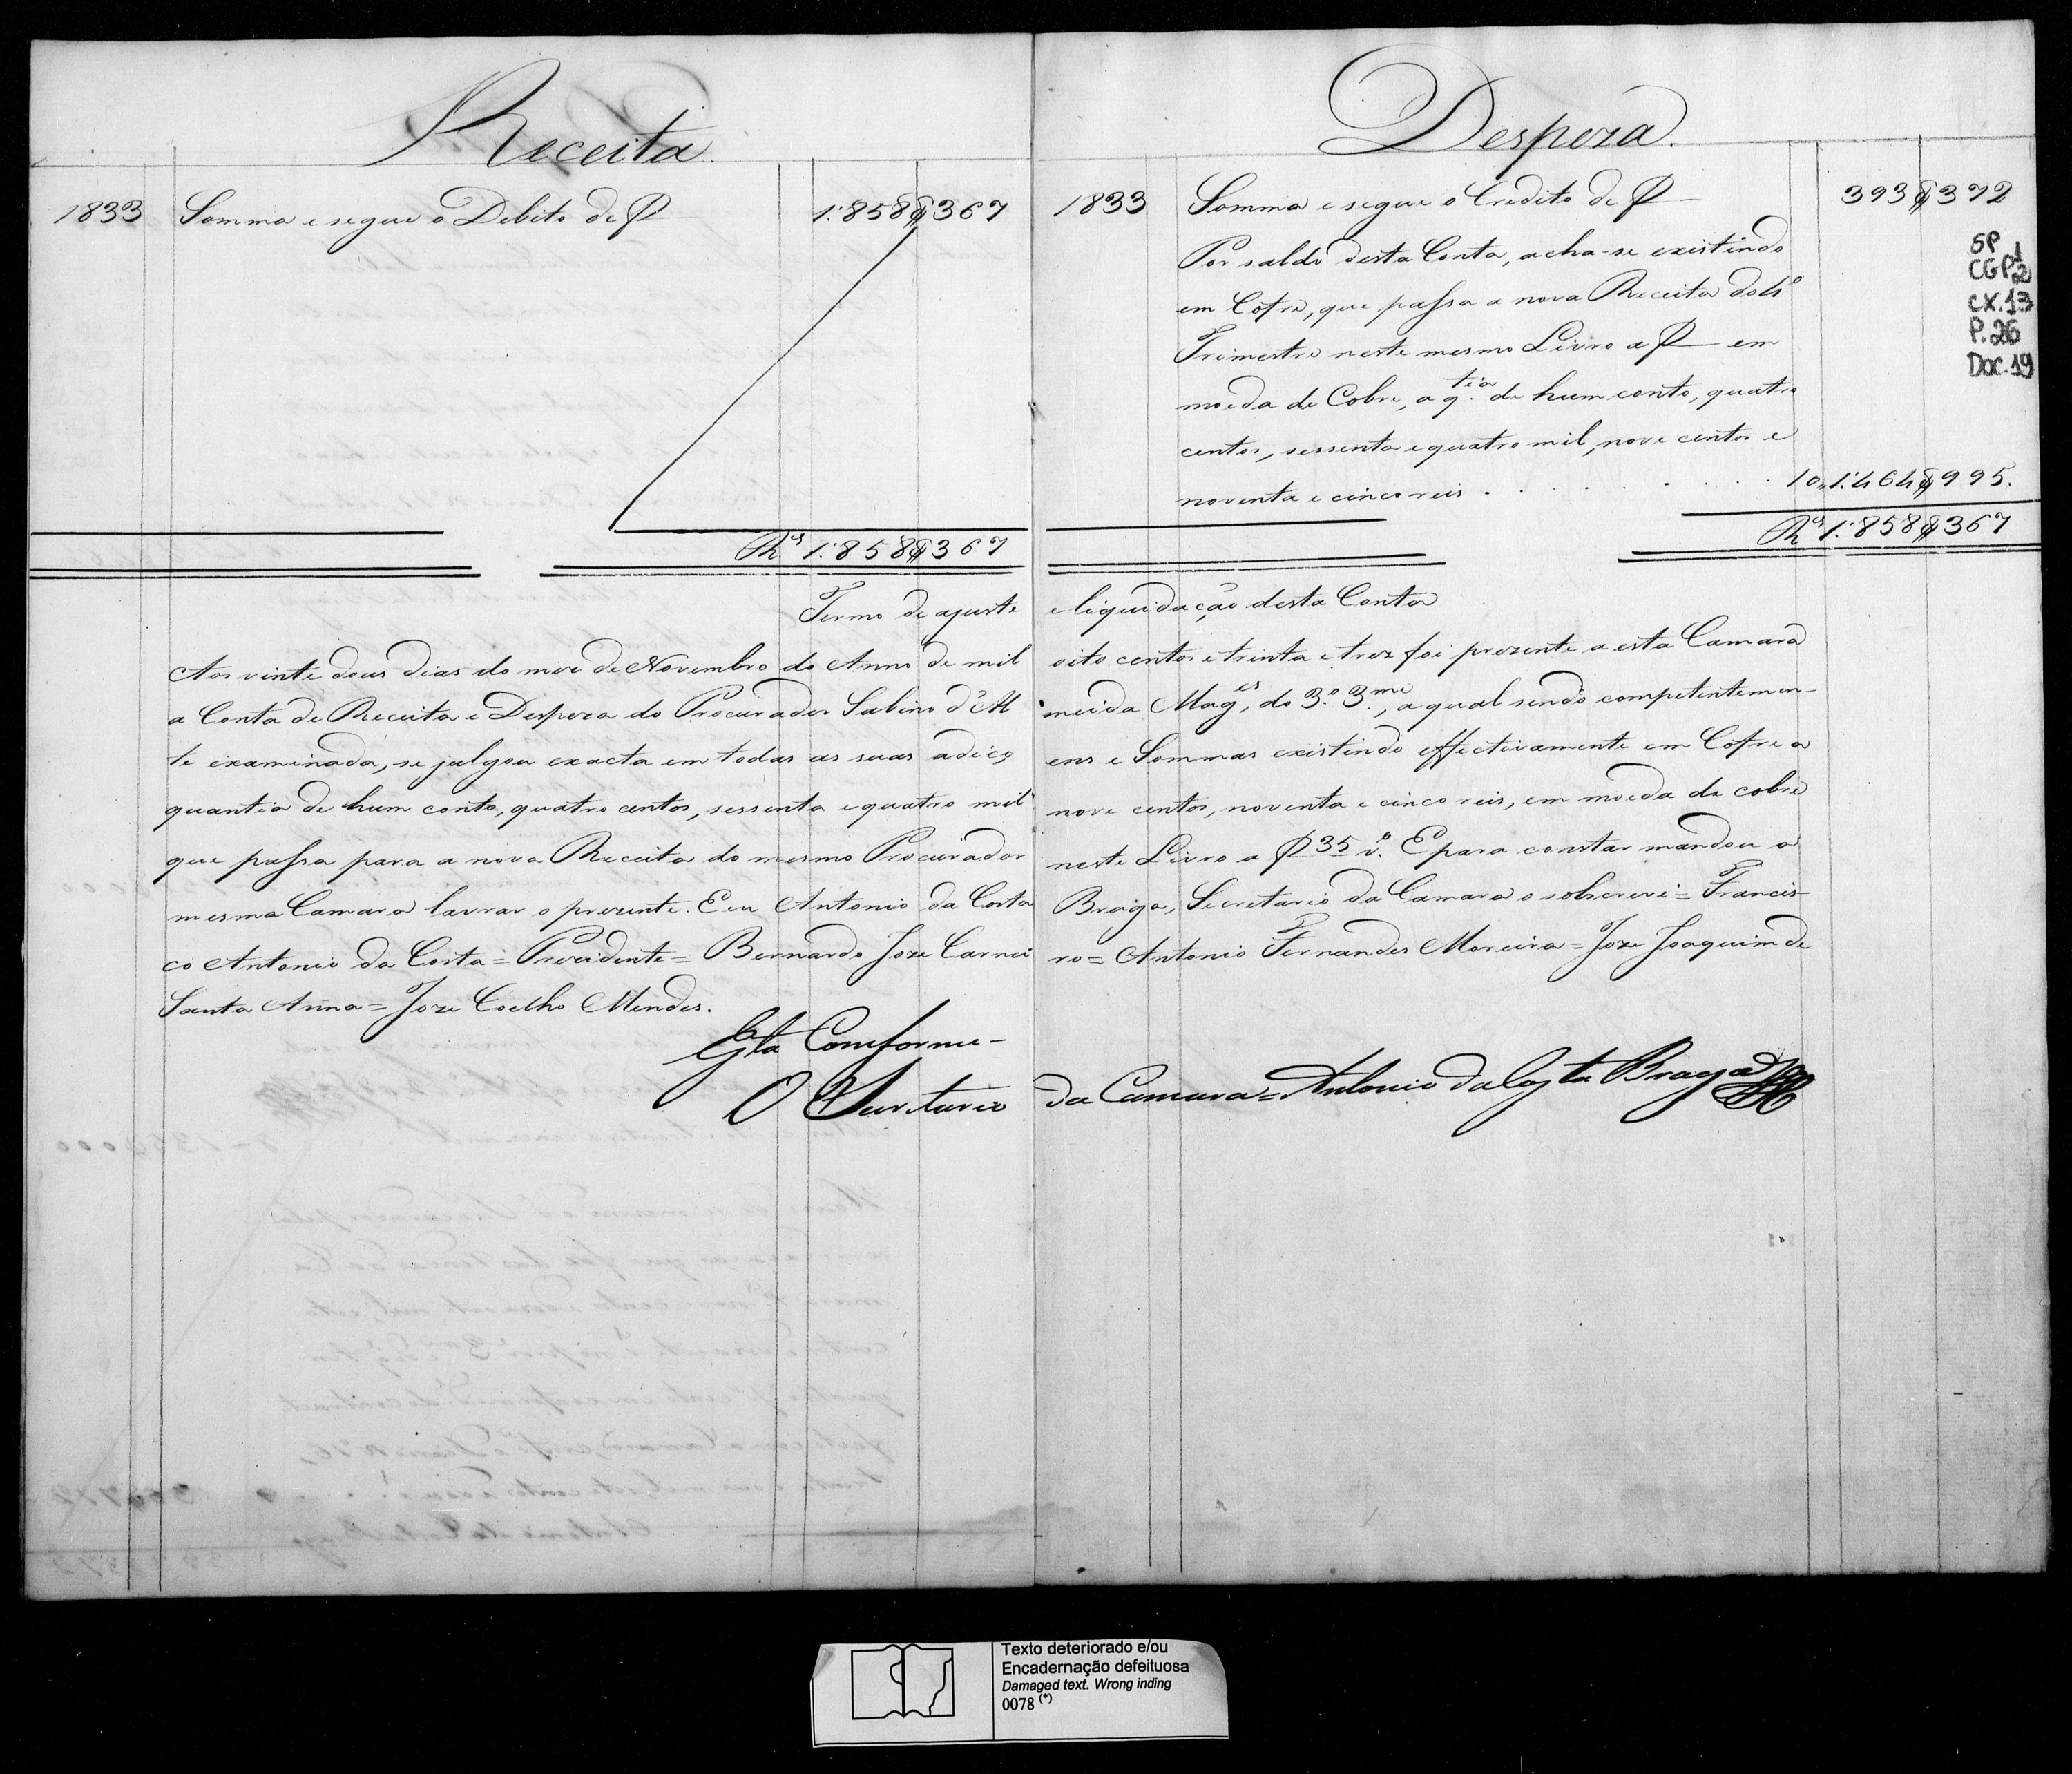 Receita
1833 Somma e segue o Debito de f 1:858$367
Rs 1:858$367
Despeza.
1833 Somma e segue o Credito de f 393$372
Por saldo desta Conta, acha-se existindo
em Cofre, que passa a nova Receita do 4º
Trimestre neste mesmo Livro a f em
moeda de Cobre, a q.tia de hum conto, quatro
centos, sessenta e quatro mil, nove centos e
noventa e cinco reis . . . . . . 10,, 1:464$995.
Rs 1:858$367
SP
CGP1.2
CX.13
P.26
Doc.19
Termo de ajuste e liquidação desta Conta
Aos vinte dous dias do mez de Novembro do Anno de mil oito centos e trinta e trez foi prezente a esta Camara
a Conta de Receita e Despeza do Procurador Sabino d'Almeida Mag.es, do 3.º 3.me, a qual sendo competentemen-
te examinada, se julgou exacta em todas as suas adiçoens e Sommas existindo effectivamente em Cofre a
quantia de hum conto, quatro centos, sessenta e quatro mil nove centos, noventa e cinco reis, em moeda de cobre
que passa para a nova Receita do mesmo Procurador neste Livro a f 35 v.º E para constar mandou a
mesma Camara lavrar o prezente. E eu Antonio da Costa Braga, Secretario da Camara o sobscrevi = Francis-
co Antonio da Costa = Prezidente = Bernardo Joze Carneiro = Antonio Fernandes Moreira = Joze Joaquim de
Santa Anna = Joze Coelho Mendes.
Esta Comforme -
O Secretario da Camara = Antonio da Costa Braga
Texto deteriorado e/ou
Encadernação defeituosa
Damaged text. Wrong inding
0078 (*)